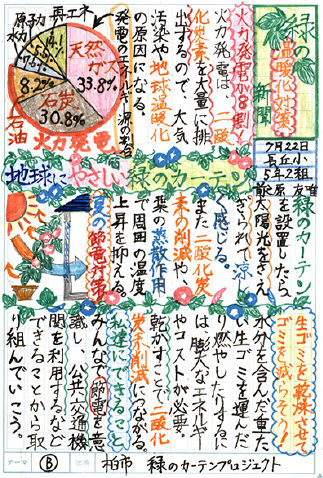 緑の
温暖化対策
新聞
7月22日
長丘小
5年2組
火力発電が8割
火力発電は、二酸
化炭素を大量に排
出するので、大気
汚染や地球温暖化
の原因になる。
発電のエネルギー源の割合
再エネ
水力
原子力
天然
ガス
33.8%
石炭
30.8%
8.2%
石油
火力発電
地球にやさしい緑のカーテン
緑のカーテン
を設置したら、
太陽光をさえ
ぎられて涼し
く感じる。
また二酸化炭
素の削減や、
葉の蒸散作用
で周囲の温度
上昇を抑える。
夏の節電対策
生ゴミを乾燥させて
ゴミ減らそう!
水分を含んだ重た
い生ゴミを運んだ
り燃やしたりするに
は、膨大なエネルギー
やコストが必要。
乾かすことで二酸化
炭素削減につながる。
私達にできること
みんなで節電を意
識し、公共交通機
関を利用するなど
できることから取
り組んでいこう。
テーマ
B
柏市 緑のカーテンプロジェクト